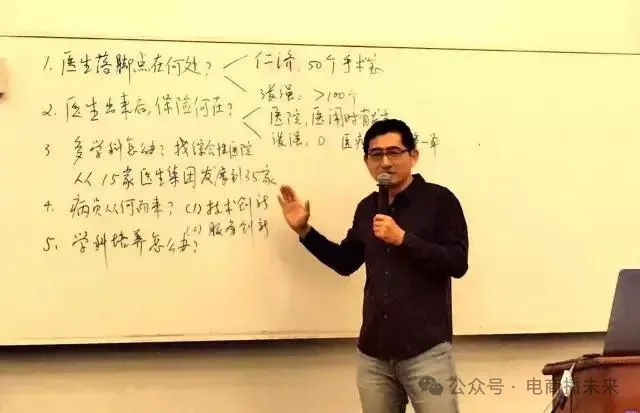 1. 医生落脚点在何处? 仁济: 50个手术室
张强: >100个
2. 医生出来后,保险何在? 医院,医闹时有发生
张强: 0 医
3 多学科怎么办? 找综合性医院
从15家医生集团发展到35家
4. 病员从何而来? (1) 技术创新
(2) 服务创新
5. 学科培养怎么办?
公众号·电商播未来